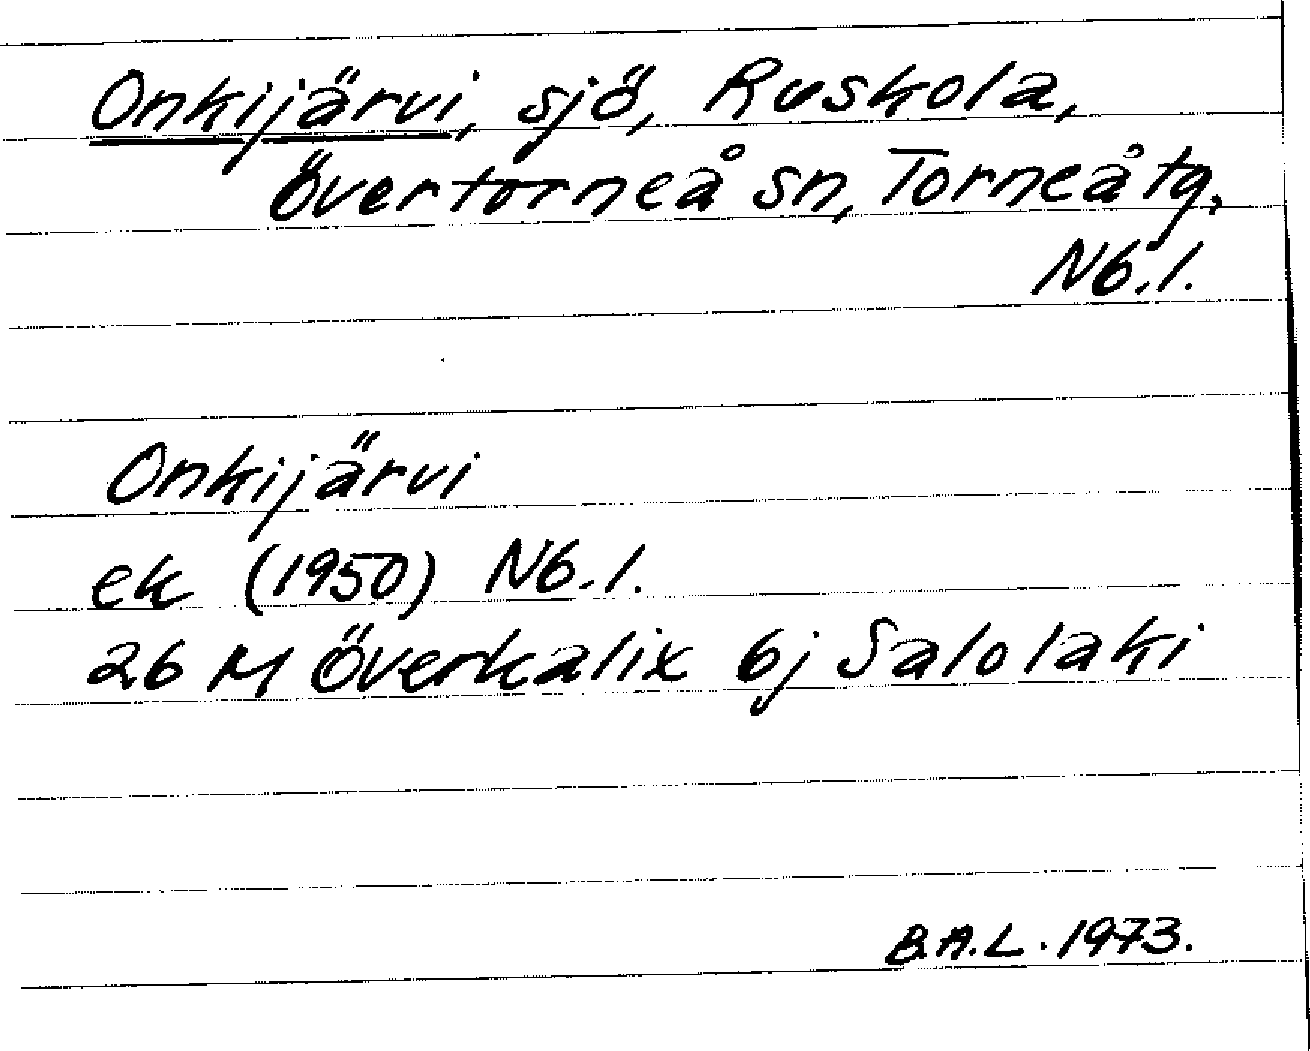 Onkijärvi, sjö, Ruskola,
Övertorneå sn, Torneå tg,
Nb. l.
Onkijärvi
ek (1950) Nb. l.
26 M Överkalix 6j Salolaki
B.A.L. 1973.